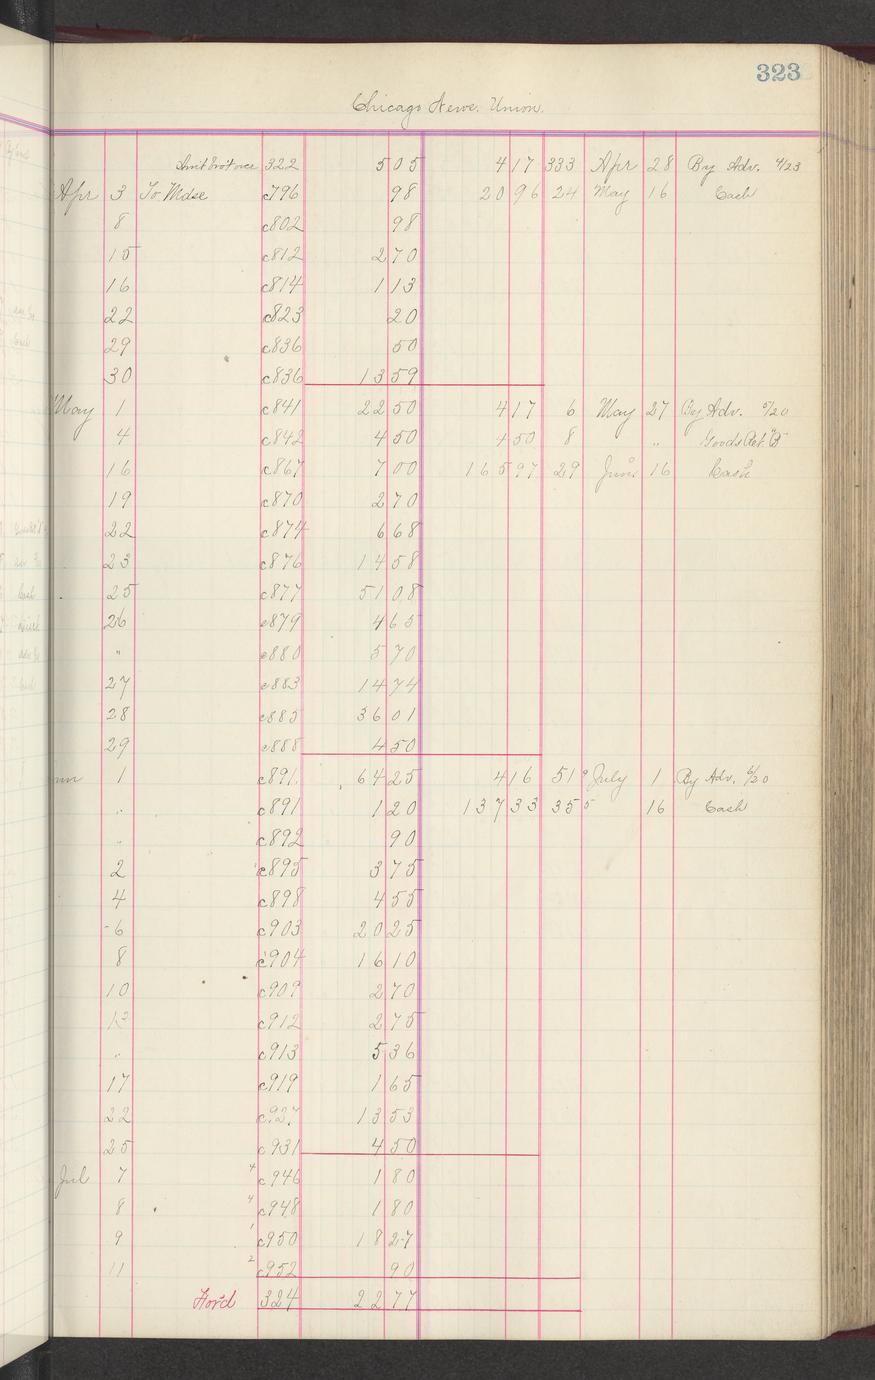 323
Chicago News. Union.
Am't bro't over 322 5 05 4 17 333 Apr 28 By Adv. 4/23
Apr 3 To Mdse c796 98 20 96 24 May 16 Cash
8 c802 98
15 c812 2 70
16 c814 1 13
22 c823 20
29 c836 50
30 c836 13 59
May 1 c841 22 50 4 17 6 May 27 By Adv. 5/20
4 c842 4 50 4 50 8 " Goods Ret. "B"
16 c867 7 00 165 97 29 June 16 Cash
19 c870 2 70
22 c874 6 68
23 c876 14 58
25 c877 51 08
26 c879 4 65
" c880 5 70
27 c883 14 74
28 c885 36 01
29 c888 4 50
un 1 c891 64 25 4 16 51 July 1 By Adv. 6/20
" c891 1 20 137 33 355 16 Cash
" c892 90
2 c895 3 75
4 c898 4 55
6 c903 20 25
8 c904 16 10
10 c909 2 70
c912 2 75
" c913 5 36
17 c919 1 65
22 c927 13 53
25 c931 4 50
Jul 7 4 c946 1 80
8 4 c948 1 80
9 1 c950 18 27
11 2 c952 90
For'd 324 22 77